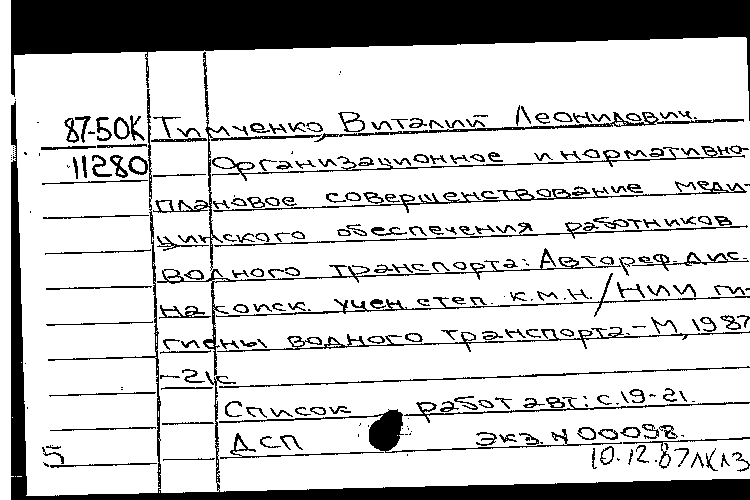 87-50К Тимченко, Виталий Леонидович.
11280 Организационное и нормативно-
плановое совершенствование меди-
цинского обеспечения работников
водного транспорта: Автореф. дис.
на соиск. учен. степ. к.м.н. / НИИ ги-
гиены водного транспорта.-М, 1987
-21с
Список работ авт: с.19-21.
ДСП экз N 00098.
5 10.12.87